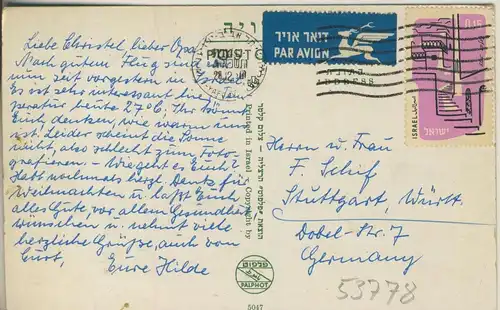 גלויה
דואר אויר
PAR AVION
0.15
ISRAEL
ישראל
Liebe Christel, lieber Opa,
Nach gutem Flug sind
wir seit vorgestern in
Es ist sehr interessant hier
peratur heute 27°C. Ihr könnt
Euch denken, wie warm uns
ist. Leider scheint die Sonne
nicht, also schlecht zum Foto-
grafieren. - Wie geht es Euch?
Habt nochmals herzl. Dank für
Weihnachten u. laßt Euch
alles Gute, vor allem Gesundheit
wünschen u. nehmt viele
herzliche Grüße, auch von
Eure Hilde
Printed in Israel - Copyright by
Herrn und Frau
F. Schif
Stuttgart, Württ.
Dobel-Str. 7
Germany
פלפוט
PALPHOT
5047
53778